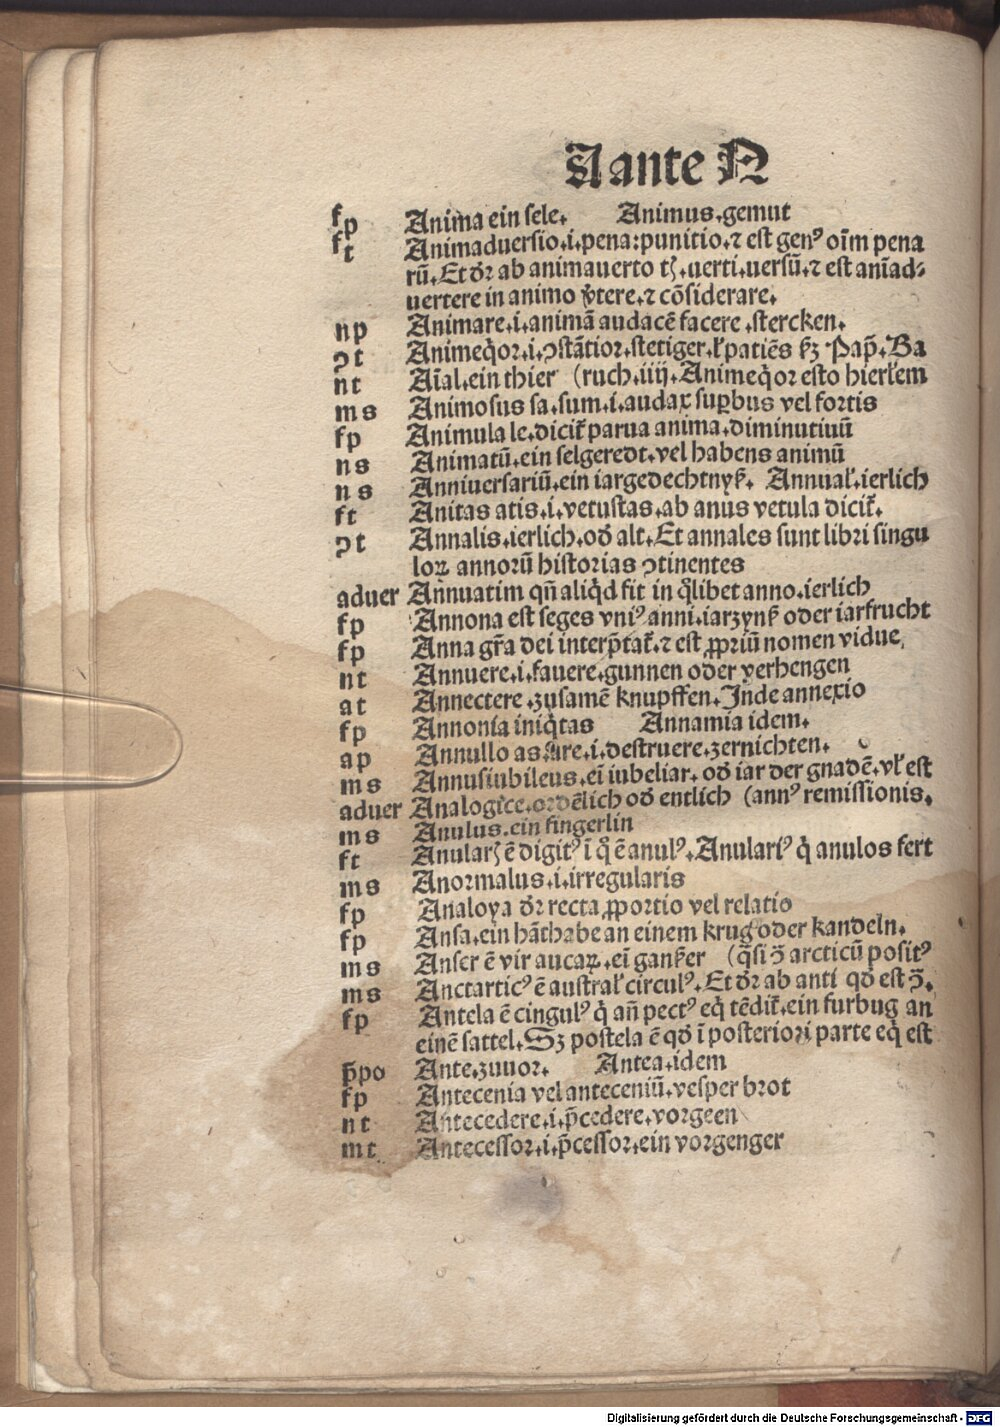 A ante N
fp Anima ein sele. Animus.gemut
ft Animaduersio.i.pena:punitio.⁊ est genꝰ oīm pena
rū.Et dr̄ ab animauerto tꝫ.uerti.uersū.⁊ est anīad-
uertere in animo v̄tere.⁊ cōsiderare.
np Animare.i.animā audacē facere .stercken.
ꝯt Animeq̄or.i.ꝯstātior.stetiger.ł patiēs s̄ꝫ Pap̄.Ba
nt Aīal.ein thier (ruch.iiij.Animeq̄or esto hierłem
ms Animosus sa.sum.i.audax suꝑbus vel fortis
fp Animula le.dicit̄ parua anima.diminutiuū
ns Animatū.ein selgeredt.vel habens animū
ns Anniuersariū.ein iargedechtnyß. Annuał.ierlich
ft Anitas atis.i.vetustas.ab anus vetula dicit̄.
ꝯt Annalis.ierlich.od̄ alt.Et annales sunt libri singu
loꝝ annorū historias ꝯtinentes
aduer Annuatim qn̄ aliq̄d fit in q̄libet anno.ierlich
fp Annona est seges vniꝰ anni.iarzynß oder iarfrucht
fp Anna gr̄a dei interp̄tat̄.⁊ est ꝓpriū nomen vidue,
nt Annuere.i.fauere.gunnen oder verhengen
at Annectere .zusamē knupffen.Inde annexio
fp Annonia iniq̄tas Annamia idem.
ap Annullo as.are.i.destruere.zernichten.
ms Annusiubileus.ei iubeliar.od̄ iar der gnadē.vł est
aduer Analogice.ordēlich od̄ entlich (annꝰ remissionis.
ms Anulus.ein fingerlin
ft Anularꝫ ē digitꝰ ī q̄ ē anulꝰ.Anulariꝰ q̄ anulos fert
ms Anormalus.i.irregularis
fp Analoya dr̄ recta ꝓportio vel relatio
fp Ansa.ein hāthabe an einem krug oder kandeln.
ms Anser ē vir aucaꝝ.ei ganßer (q̄si ↄ̄ arcticū positꝰ
ms Anctarticꝰ ē austrał circulꝰ.Et dr̄ ab anti qd̄ est ↄ̄.
fp Antela ē cingulꝰ q̄ an̄ pectꝰ eq̄ tēdit̄.ein furbug an
einē sattel.Sꝫ postela ē qd̄ ī posteriori parte eq̄ est
p̄po Ante.zuuor. Antea.idem
fp Antecenia vel anteceniū.vesper brot
nt Antecedere.i.p̄cedere.vorgeen
mt Antecessor.i.p̄cessor.ein vorgenger
Digitalisierung gefördert durch die Deutsche Forschungsgemeinschaft - DFG